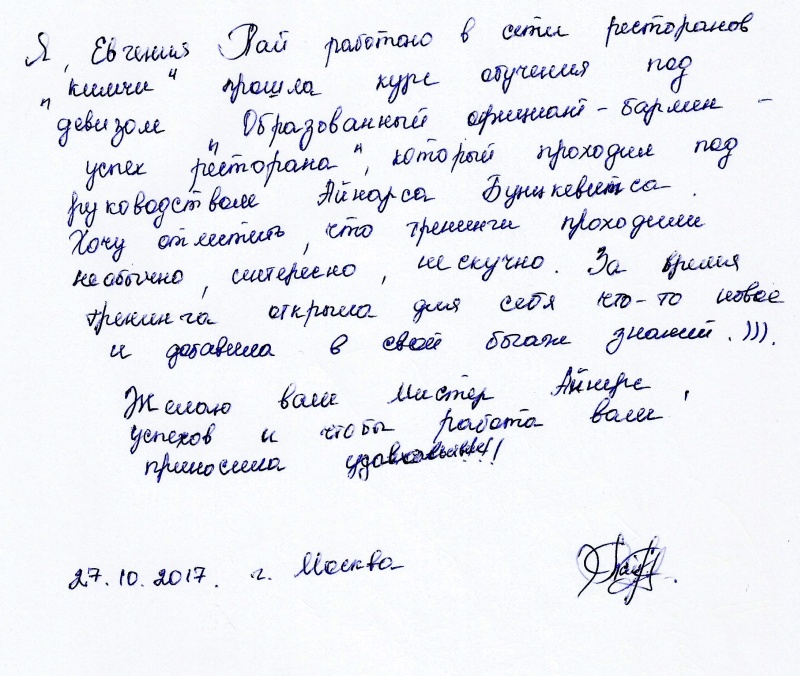 Я, Евгения Пай работаю в сети ресторанов
"кимчи" прошла курс обучения под
девизом "Образованный официант-бармен -
успех ресторана", который проходил под
руководством Айнарса Буницкевитса.
Хочу отметить, что тренинги проходили
необычно, интересно, не скучно. За время
тренинга открыла для себя что-то новое
и добавила в свой багаж знаний.))).
Желаю вам Мистер Айнарс,
успехов и чтобы работа вам
приносила !!!
27.10.2017. г. Москва